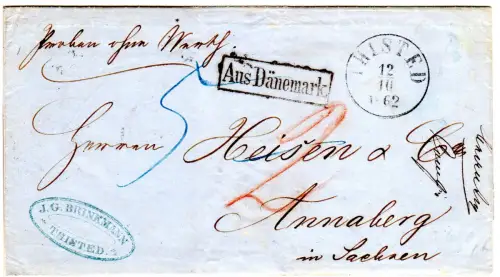 Proben ohne Werth.
THISTED
12
10
1862
Aus Dänemark
5
2
Herren Heisen & Co
Annaberg
in Sachsen
J. G. BRINKMANN
THISTED